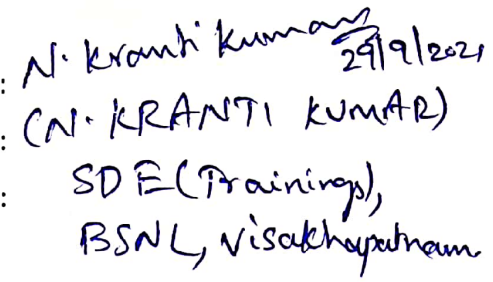 : N. Kranti Kumar 29/9/2021
: (N. KRANTI KUMAR)
: SDE (Trainings),
BSNL, Visakhapatnam